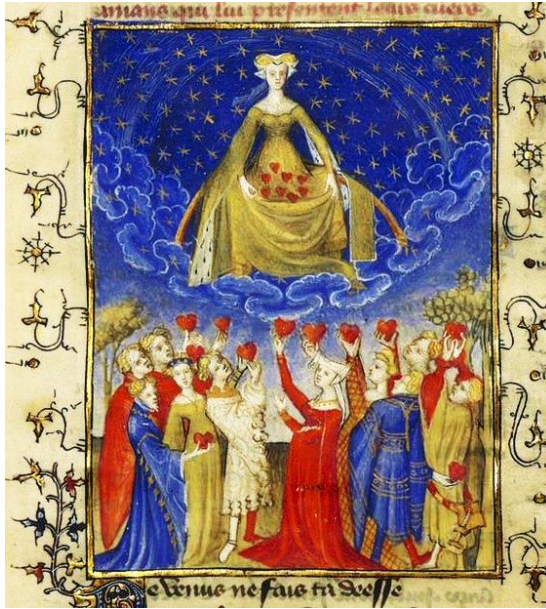 amans qui lui presentent leurs cuers
De venus ne fais tu deesse